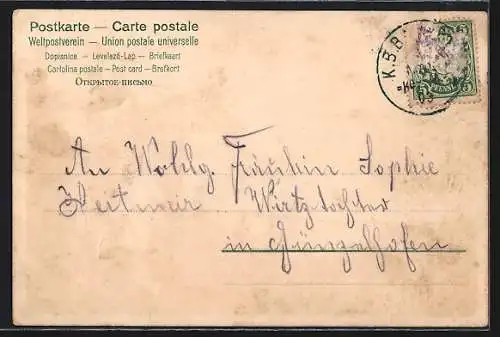 Postkarte — Carte postale
Weltpostverein — Union postale universelle
Dopisnice — Levelező-Lap — Briefkaart
Cartolina postale — Post card — Brefkort
Открытое-письмо
K.B.B
5 PFENNIG 5
An Wohlg. Fräulein Sophie
Zeitmeir Wirtztochter
in Günzelhofen